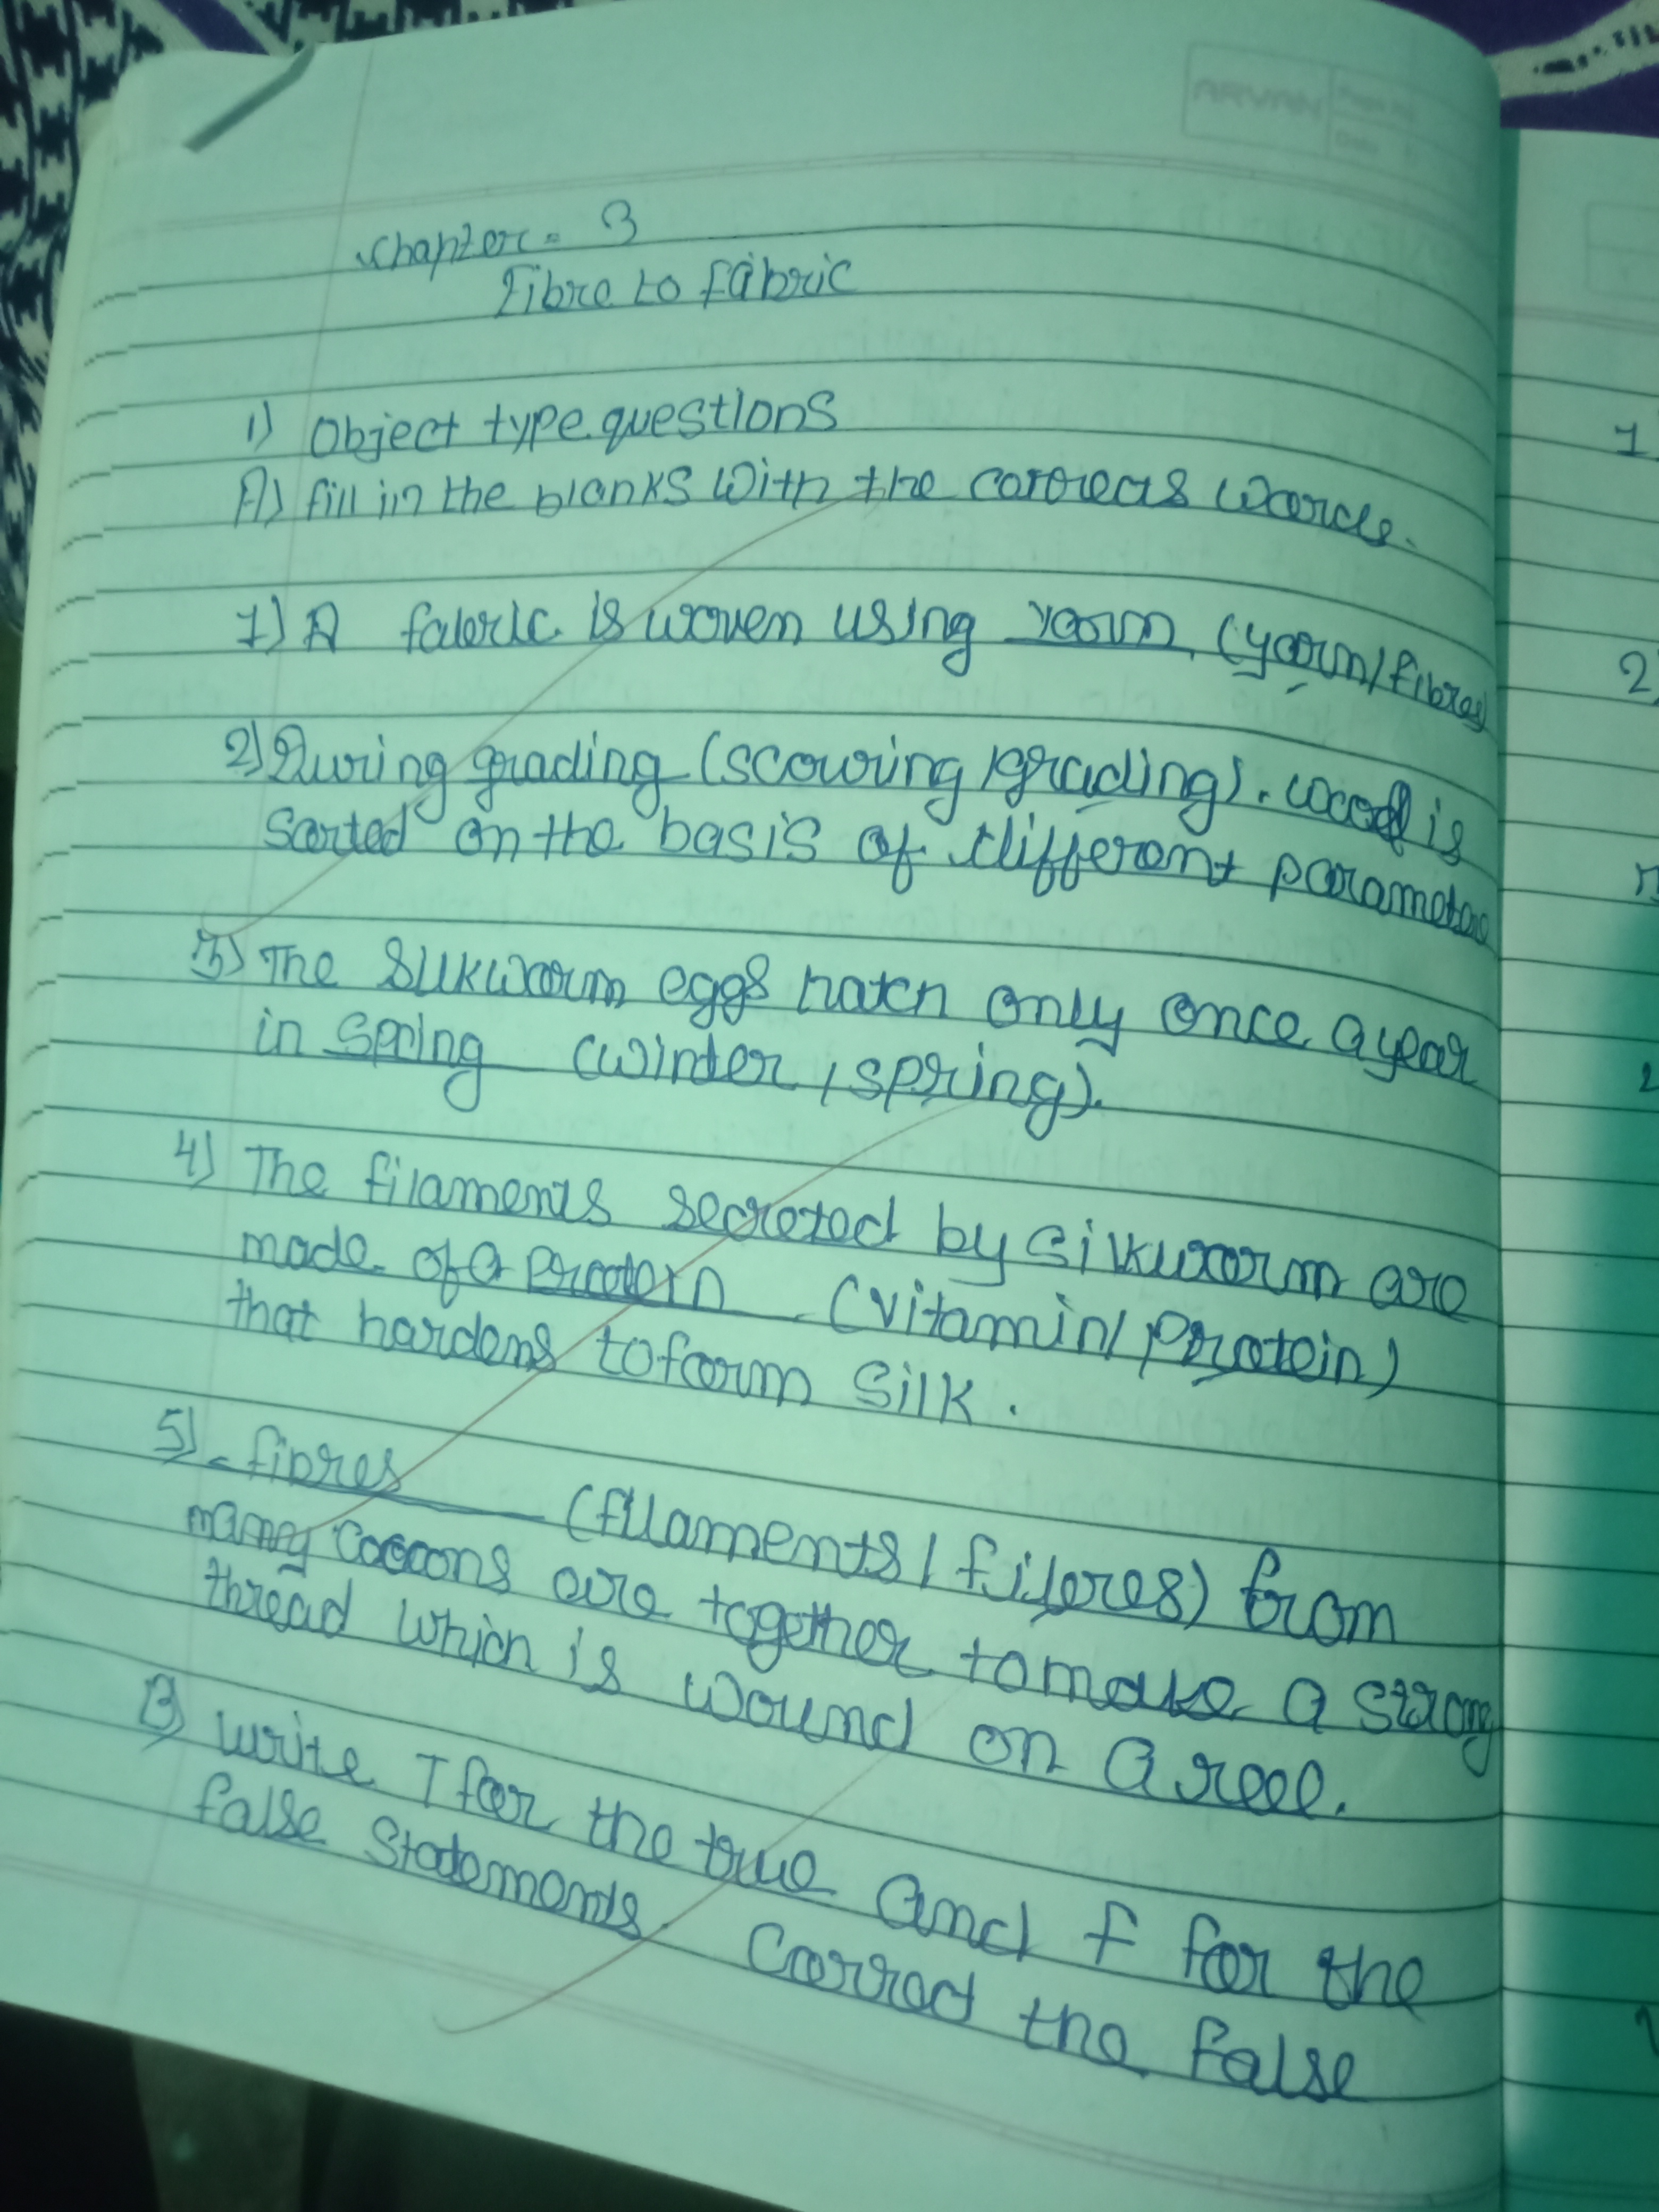 ARVAN
Page No.
Date
Chapter - 3
Fibre to Fabric
1) Object type questions
A) fill in the blanks with the words.
1) A fabric is woven using Yarn (yarn/fibres
2) During grading (scouring/grading). wool is
Sorted on the basis of different parameters
3) The Silkworm eggs hatch only once a year
in Spring (winter, spring).
4) The filaments secreted by silkworm are
made of a Protein (vitamin/Protein)
that hardens to form silk.
5) fibres (filaments/fibres) from
many Cocoons are together to make a strong
thread which is wound on a reel.
B) write T for the true and F for the
false Statements. Correct the false
1
2)